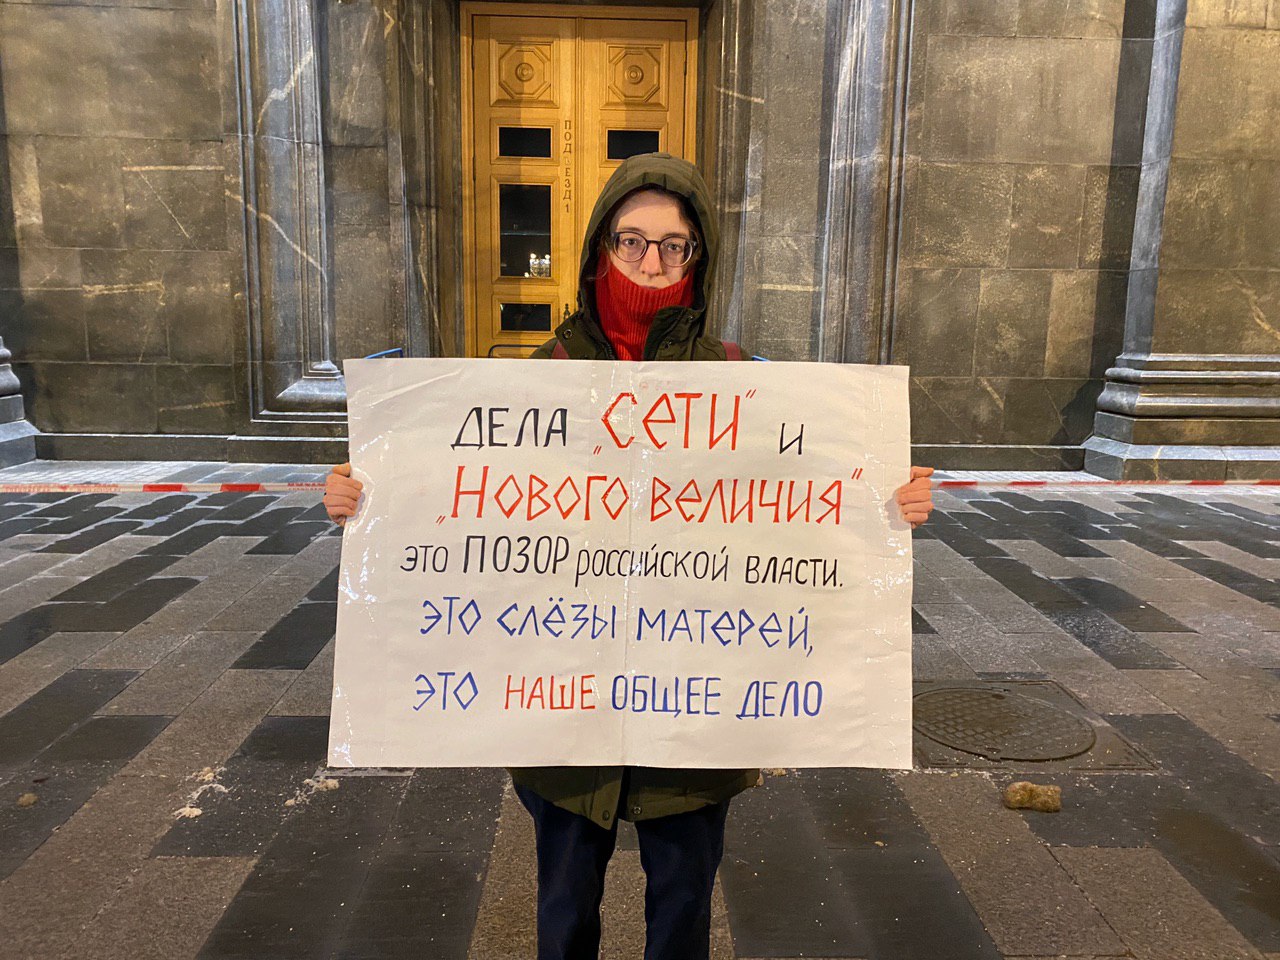 ПОДЪЕЗД 1
ДЕЛА „СЕТИ" и
„НОВОГО ВЕЛИЧИЯ"
ЭТО ПОЗОР РОССИЙСКОЙ ВЛАСТИ.
ЭТО СЛЁЗЫ МАТЕРЕЙ,
ЭТО НАШЕ ОБЩЕЕ ДЕЛО